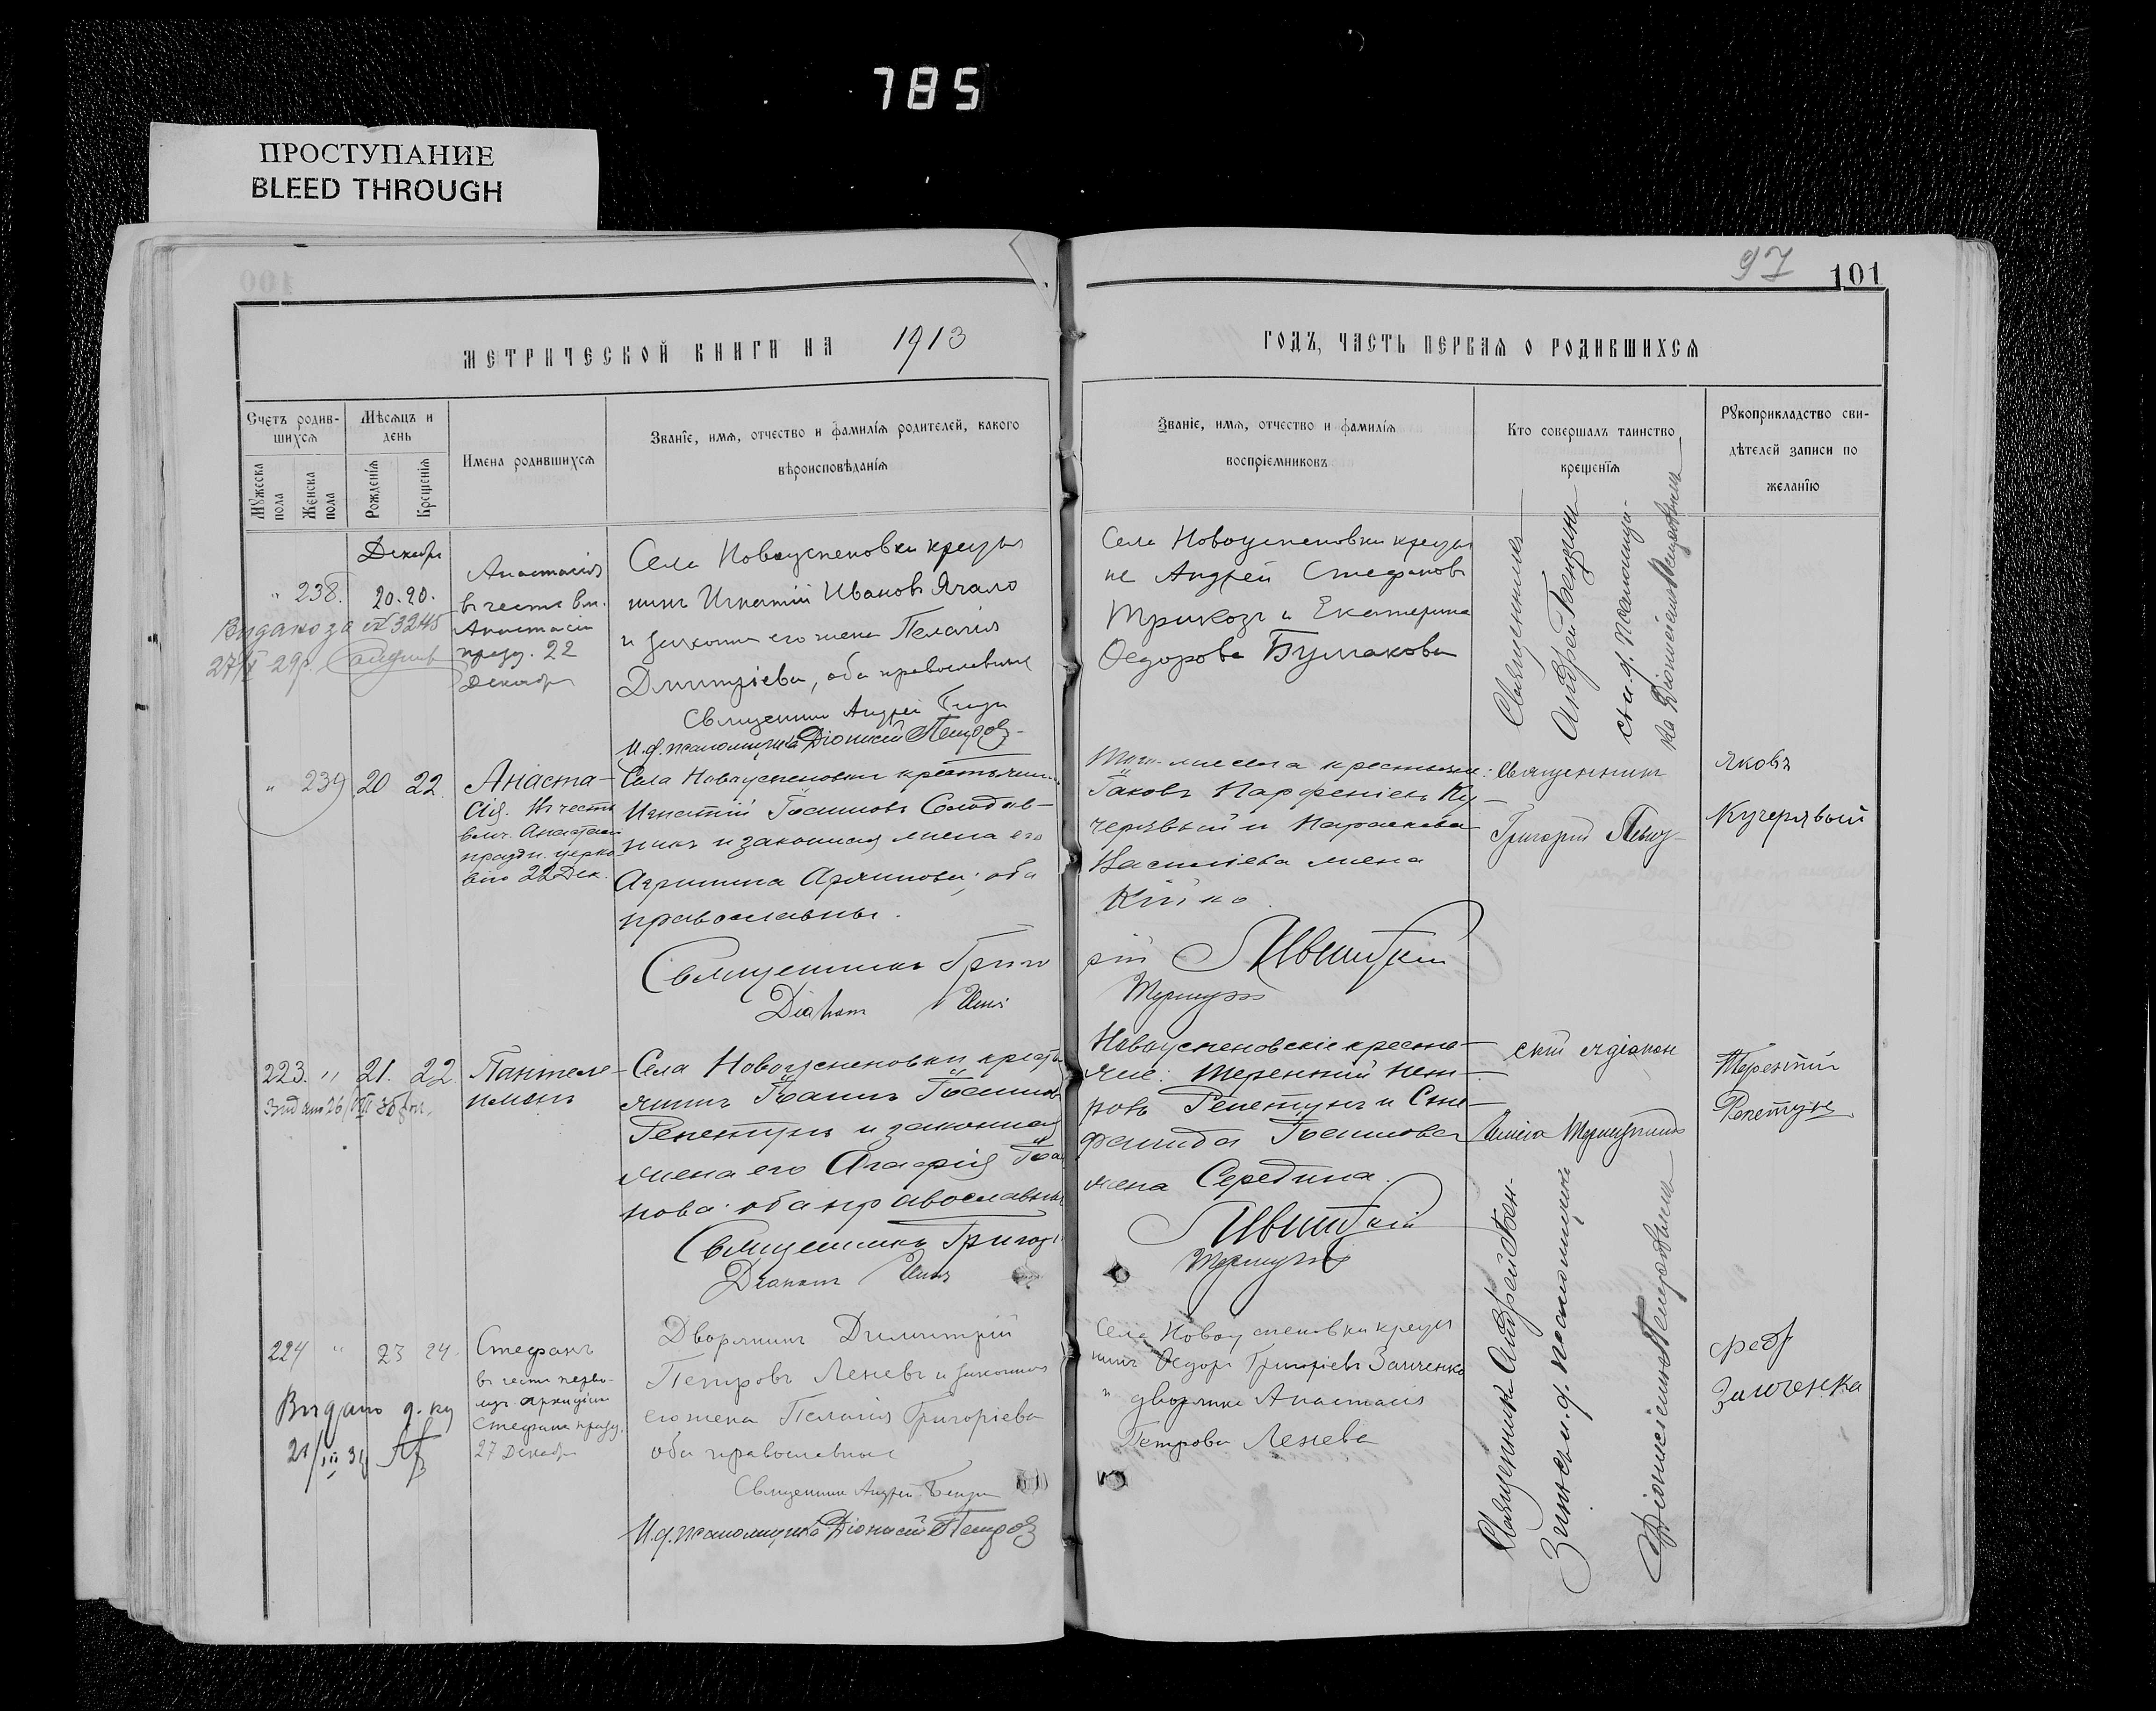 785
ПРОСТУПАНИЕ
BLEED THROUGH
100
97
101
МЕТРИЧЕСКОЙ КНИГИ НА 1913
ГОДЪ, ЧАСТЬ ПЕРВАЯ О РОДИВШИХСЯ
Счетъ родив-
шихся
Мужеска
пола
Женска
пола
Мѣсяцъ и
день
Рожденія
Крещенія
Имена родившихся
Званіе, имя, отчество и фамилія родителей, какого
вѣроисповѣданія
Званіе, имя, отчество и фамилія
воспріемниковъ
Кто совершалъ таинство
крещенія
Рукоприкладство сви-
дѣтелей записи по
желанію
Декабрь
" 238. 20. 20.
Видано за № 3245
27/
Анастасія
въ честь вм.
Анастасіи
празд. 22
Декабря
Села Новоуспеновки крестья
нинъ Игнатій Ивановъ Ячало
и законная его жена Пелагія
Димитріева, оба православные
Священникъ Андрей
И. д. псаломщика Діонисій Петров
Села Новоуспеновки крестья
не Андрей Стефановъ
Трикозъ и Екатерина
Ѳедорова Бушакова
Священникъ
Андрей
с и. д. псаломщи-
ка Діонисіемъ
" 239 20 22
Анаста-
сія. Въ честь
влмч. Анастасіи
праздн. церко
вію 22 Дек.
Села Новоуспеновки крестьянинъ
Игнатій Іоанновъ Солодов-
никъ и законная жена его
Агрипина ; оба
православны.
Священникъ Григо
рій
Діаконъ
крестьяне:
Іаковъ Парфеніевъ Ку-
черявый и Параскева
Василіева жена
Кійко.
Священникъ
Григорій
Яковъ
Кучерявый
223. " 21. 22.
Пантеле-
имонъ
Села Новоуспеновки кресть
янинъ Іоаннъ Іоанновъ
Репетунъ и законная
жена его Агафія Іоан
нова: оба православны
Священникъ Григорі
Діаконъ
Новоуспеновскіе крестья-
яне: Терентій Пет-
ровъ Репетунъ и Сте-
фанида Іоаннова
жена Середина.
скій и діакон
Терентій
Репетунъ
224 " 23 24
Видано д. ку
21/III 34
Стефанъ
въ честь перво-
муч. архидіак
Стефана празд.
27 Декабря
Дворянинъ Димитрій
Петровъ Леневъ и законная
его жена Пелагія Григоріева
оба православные
Священникъ Андрей
И. д. псаломщика Діонисій Петров
Села Новоуспеновки крестья
нинъ Ѳедоръ Григоріевъ Заиченко
и дворянка Анастасія
Петрова Ленева
Священникъ Андрей Бен-
зинъ с и. д. псаломщика
Діонисіемъ
Заиченка